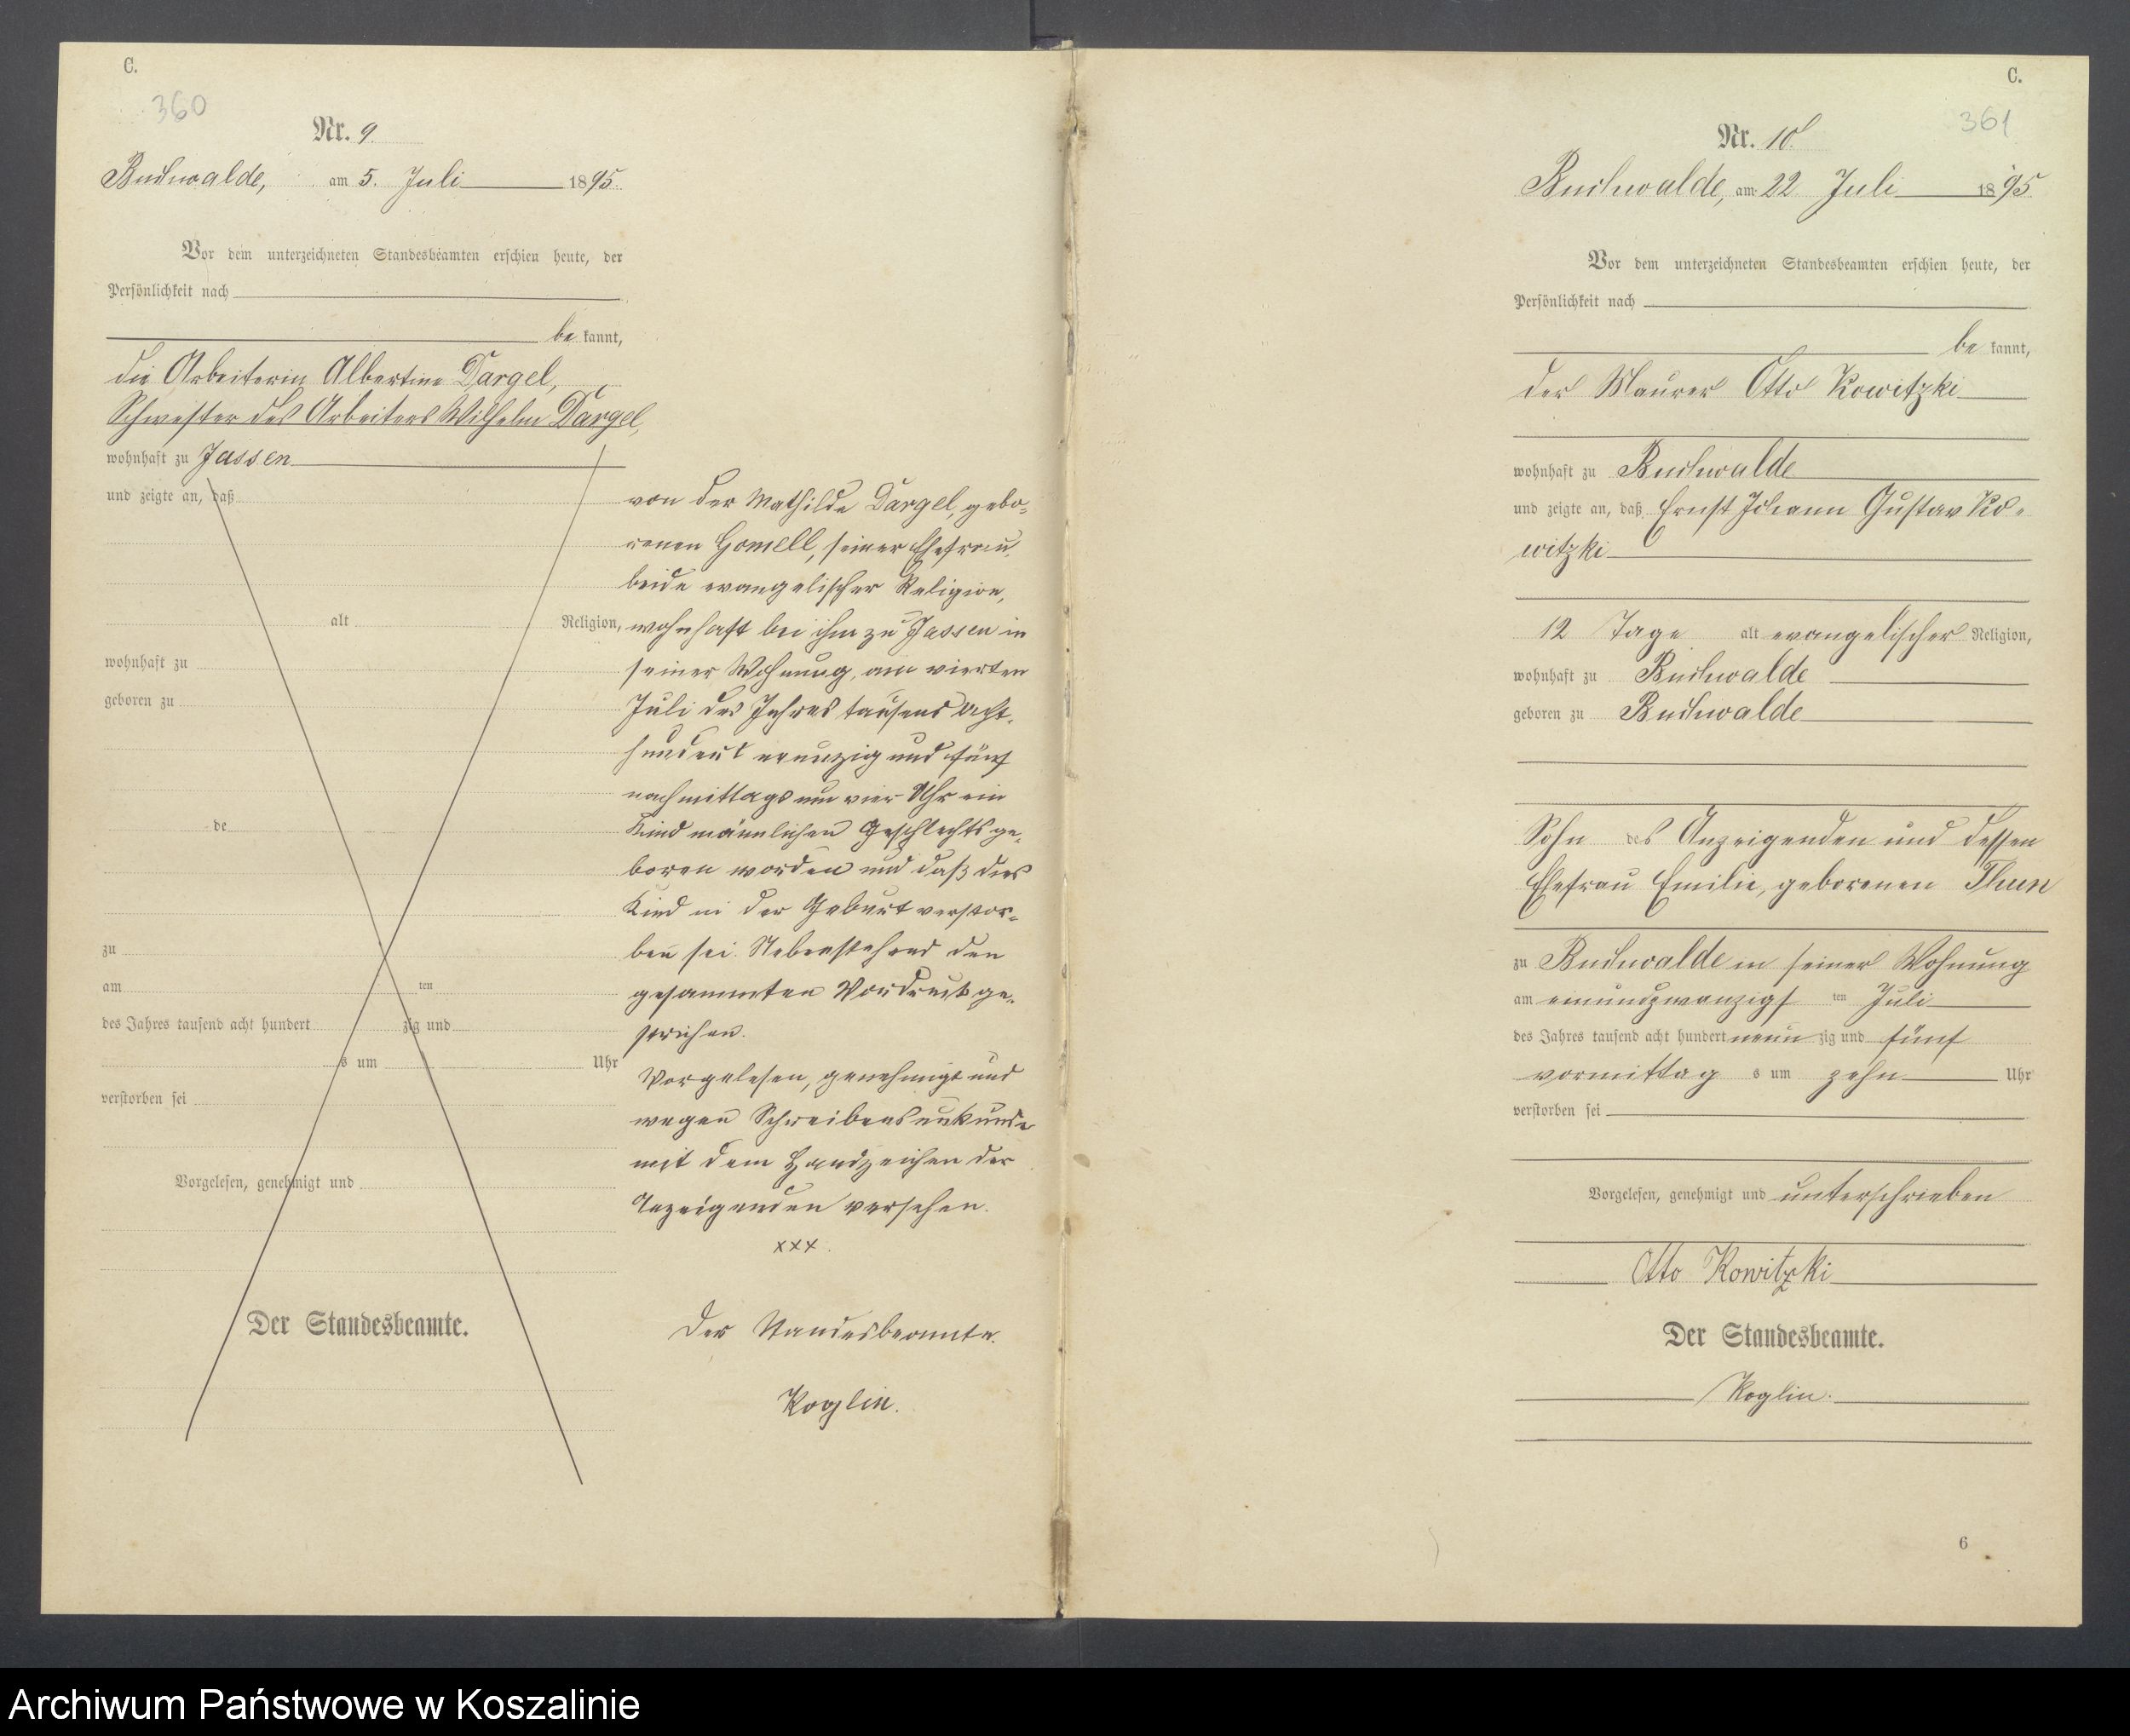 C.
360
Nr. 9.
Buchwalde, am 5. Juli 1895.
Vor dem unterzeichneten Standesbeamten erschien heute, der
Persönlichkeit nach
be kannt,
die Arbeiterin Albertine Dargel,
Schwester des Arbeiters Wilhelm Dargel,
wohnhaft zu Jassen
und zeigte an, daß
alt Religion,
wohnhaft zu
geboren zu
de
zu
am ten
des Jahres tausend acht hundert zig und
s um Uhr
verstorben sei
Vorgelesen, genehmigt und
Der Standesbeamte.
von der Mathilde Dargel, gebo-
renen Gomell, seiner Ehefrau,
beide evangelischer Religion,
wohnhaft bei ihm zu Jassen in
seiner Wohnung, am vierten
Juli des Jahres tausend acht-
hundert neunzig und fünf
nachmittags um vier Uhr ein
Kind männlichen Geschlechts ge-
boren worden und daß dies
Kind in der Geburt verstor-
ben sei. Nebenstehend den
gesammten Vordruck ge-
strichen.
Vorgelesen, genehmigt und
wegen Schreibensunkunde
mit dem Handzeichen der
Anzeigenden versehen.
xxx.
Der Standesbeamte.
Koglin.
C.
361
Nr. 10.
Buchwalde, am 22. Juli 1895
Vor dem unterzeichneten Standesbeamten erschien heute, der
Persönlichkeit nach
be kannt,
der Maurer Otto Kowitzki
wohnhaft zu Buchwalde
und zeigte an, daß Ernst Johann Gustav Ko-
witzki
12 Tage alt evangelischer Religion,
wohnhaft zu Buchwalde
geboren zu Buchwalde
Sohn des Anzeigenden und dessen
Ehefrau Emilie, geborenen Thun
zu Buchwalde in seiner Wohnung
am einundzwanzigs ten Juli
des Jahres tausend acht hundert neun zig und fünf
vormittag s um zehn Uhr
verstorben sei
Vorgelesen, genehmigt und unterschrieben
Otto Kowitzki
Der Standesbeamte.
Koglin.
6
Archiwum Państwowe w Koszalinie